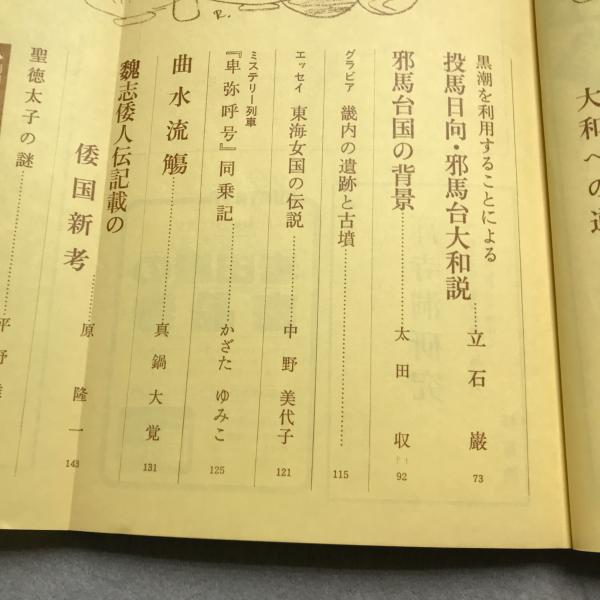 大和への道
黒潮を利用することによる
投馬日向・邪馬台大和説……立石 巌 73
邪馬台国の背景……太田 収 92
グラビア 畿内の遺跡と古墳……115
エッセイ 東海女国の伝説……中野 美代子 121
ミステリー列車
『卑弥呼号』同乗記……かざた ゆみこ 125
曲水流觴……真鍋 大覚 131
魏志倭人伝記載の
倭国新考……原 隆一 143
聖徳太子の謎……平野
R.